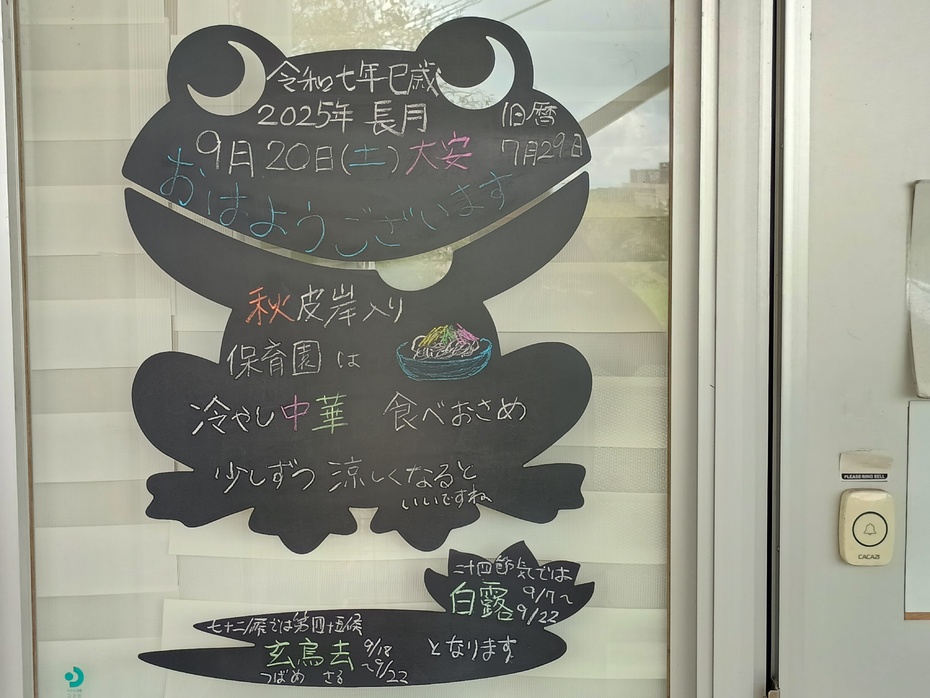 令和七年巳歳
2025年 長月
旧暦
9月20日(土)大安
7月29日
おはようございます
秋皮岸入り
保育園は
冷やし中華 食べおさめ
少しずつ 涼しくなると
いいですね
二十四節気では
白露 9/7〜
9/22
七十二候では第四十五候
玄鳥去 9/18
〜9/22
つばめ さる
となります
PLEASE RING BELL
CACAZI